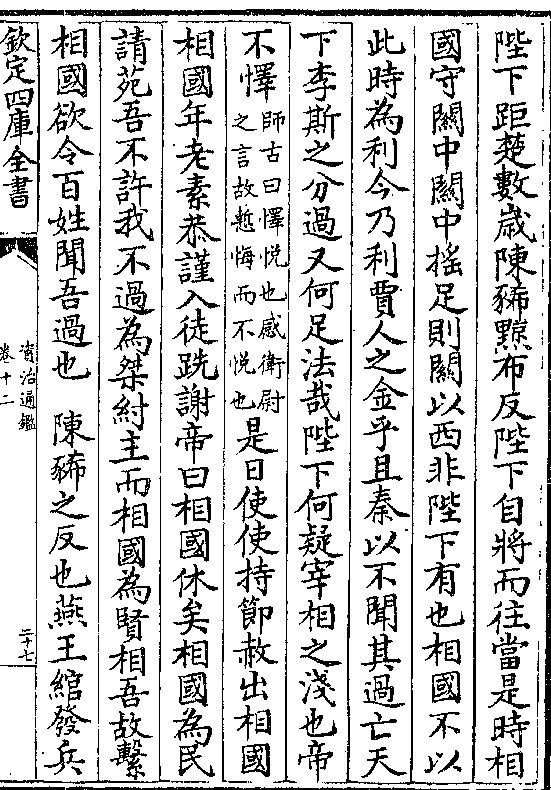 陛下距楚數歲陳豨黥布反陛下自將而往當是時相
國守關中關中搖足則關以西非陛下有也相國不以
此時為利今乃利賈人之金乎且秦以不聞其過亡天
下李斯之分過又何足法哉陛下何疑宰相之淺也帝
不懌師古曰懌悅也感衛尉之言故慙悔而不悅也是日使使持節赦出相國
相國年老素恭謹入徒跣謝帝曰相國休矣相國為民
請苑吾不許我不過為桀紂主而相國為賢相吾故繫
相國欲令百姓聞吾過也 陳豨之反也燕王綰發兵
欽定四庫全書
資治通鑑
卷十二
二十七